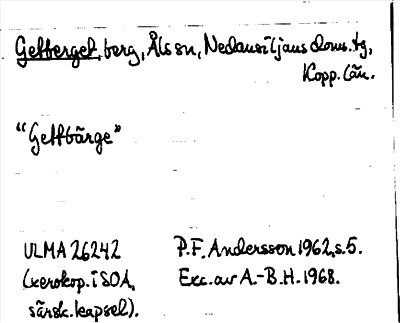 Getberget, berg, Åls sn, Nedansiljans doms. tg,
Kopp. län.
"Gettbärge"
ULMA 26242
(xerokop. i SOA,
särsk. kapsel).
P.F. Andersson 1962, s. 5.
Exc. av A.-B.H. 1968.